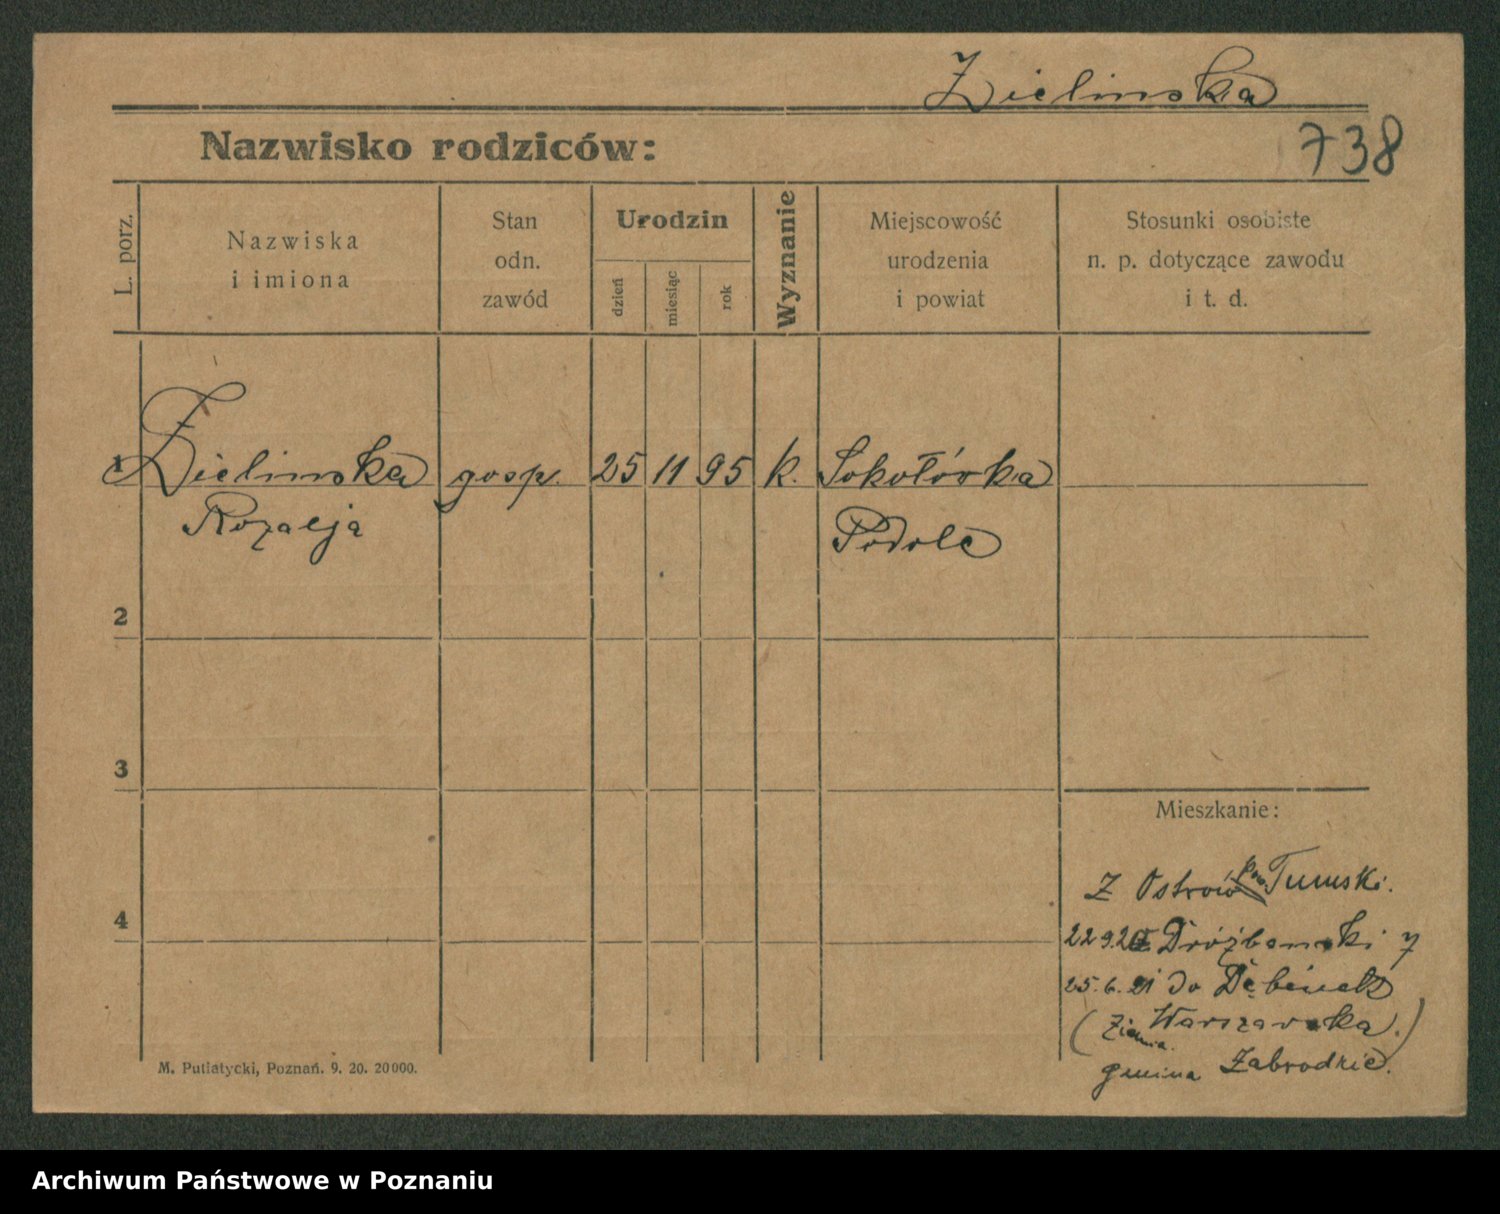 Zielinska
738
Nazwisko rodziców:
L. porz.
Nazwiska
i imiona
Stan
odn.
zawód
Urodzin
dzień
miesiąc
rok
Wyznanie
Miejscowość
urodzenia
i powiat
Stosunki osobiste
n. p. dotyczące zawodu
i t. d.
1 Zielinska gosp. 25 11 95 k. Sokołówka
Rozalja Podole
2
3
4
Mieszkanie:
Z Ostrów Tumski.
22 9. Dróżbanski 7
25. 6. 21 do Dębinek
(Ziemia Warszawska.)
gmina Zabrodzie.
M. Putiatycki, Poznań. 9. 20. 20000.
Archiwum Państwowe w Poznaniu